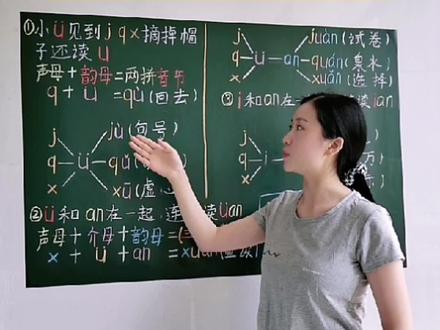 ①小ü见到j q x摘掉帽
子还读ü
声母+韵母=两拼音节
q + ü =qù(回去)
j
q ü
x
jù(句号)
q
xū(虚
②ü和an在一起,连 读üan
声母+介母+韵母=(三
x + ü + an =xuān
j juàn(试卷)
q ü an quán(泉水)
x xuǎn(选择)
③i和an在 读ian
j
q i
x